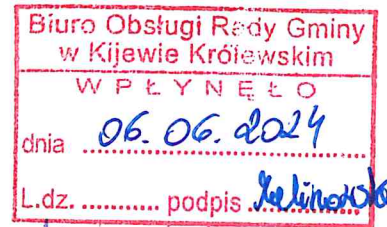 Biuro Obsługi Rady Gminy
w Kijewie Królewskim
WPŁYNĘŁO
dnia 06.06.2024
L.dz. ........... podpis Kalinowska